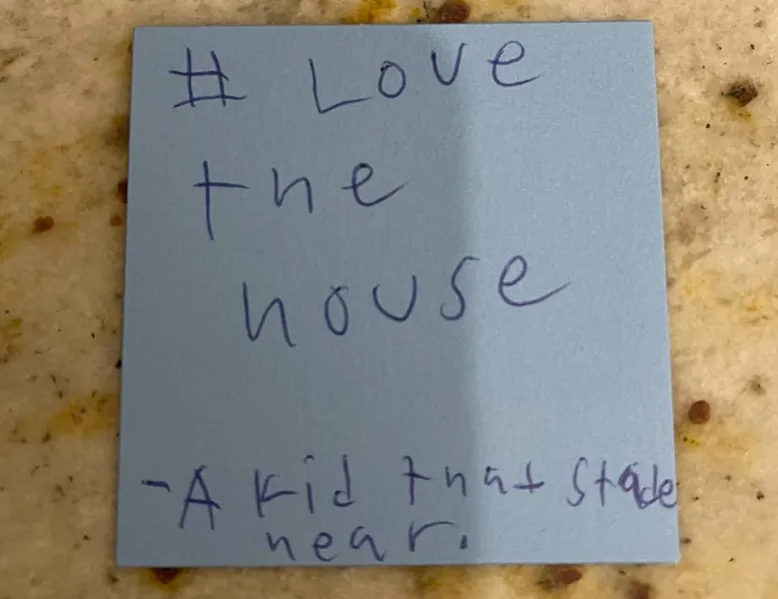 # Love
the
house
- A kid that stade
near.